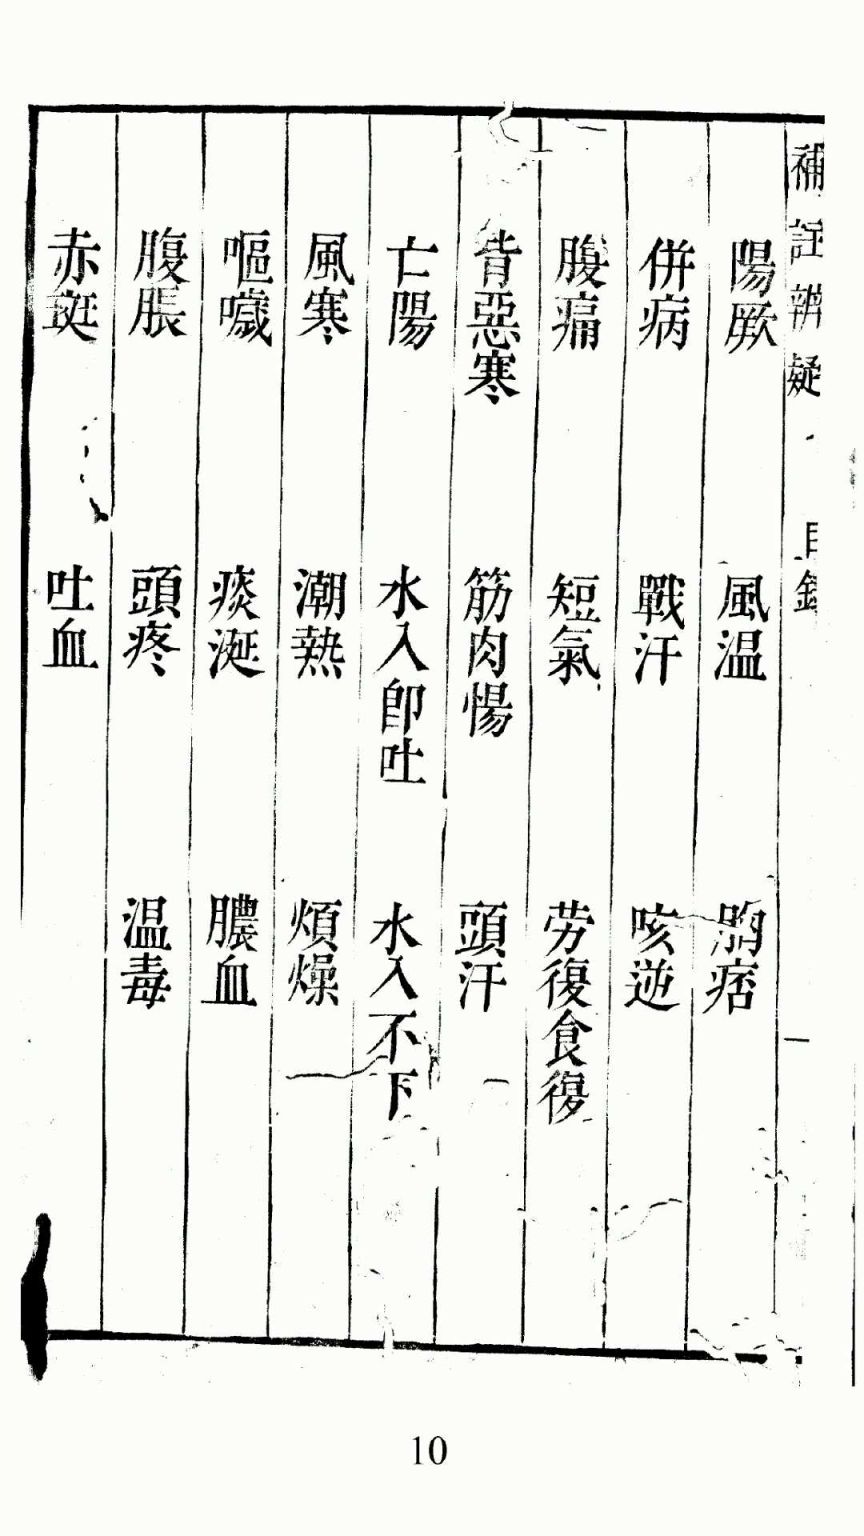 補註辨疑 目錄
陽厥 風温 胸痞
併病 戰汗 咳逆
腹痛 短氣 劳復食復
背惡寒 筋肉惕 頭汗
亡陽 水入卽吐 水入不下
風寒 潮熱 煩燥
嘔噦 痰涎 膿血
腹脹 頭疼 温毒
赤斑 吐血
10